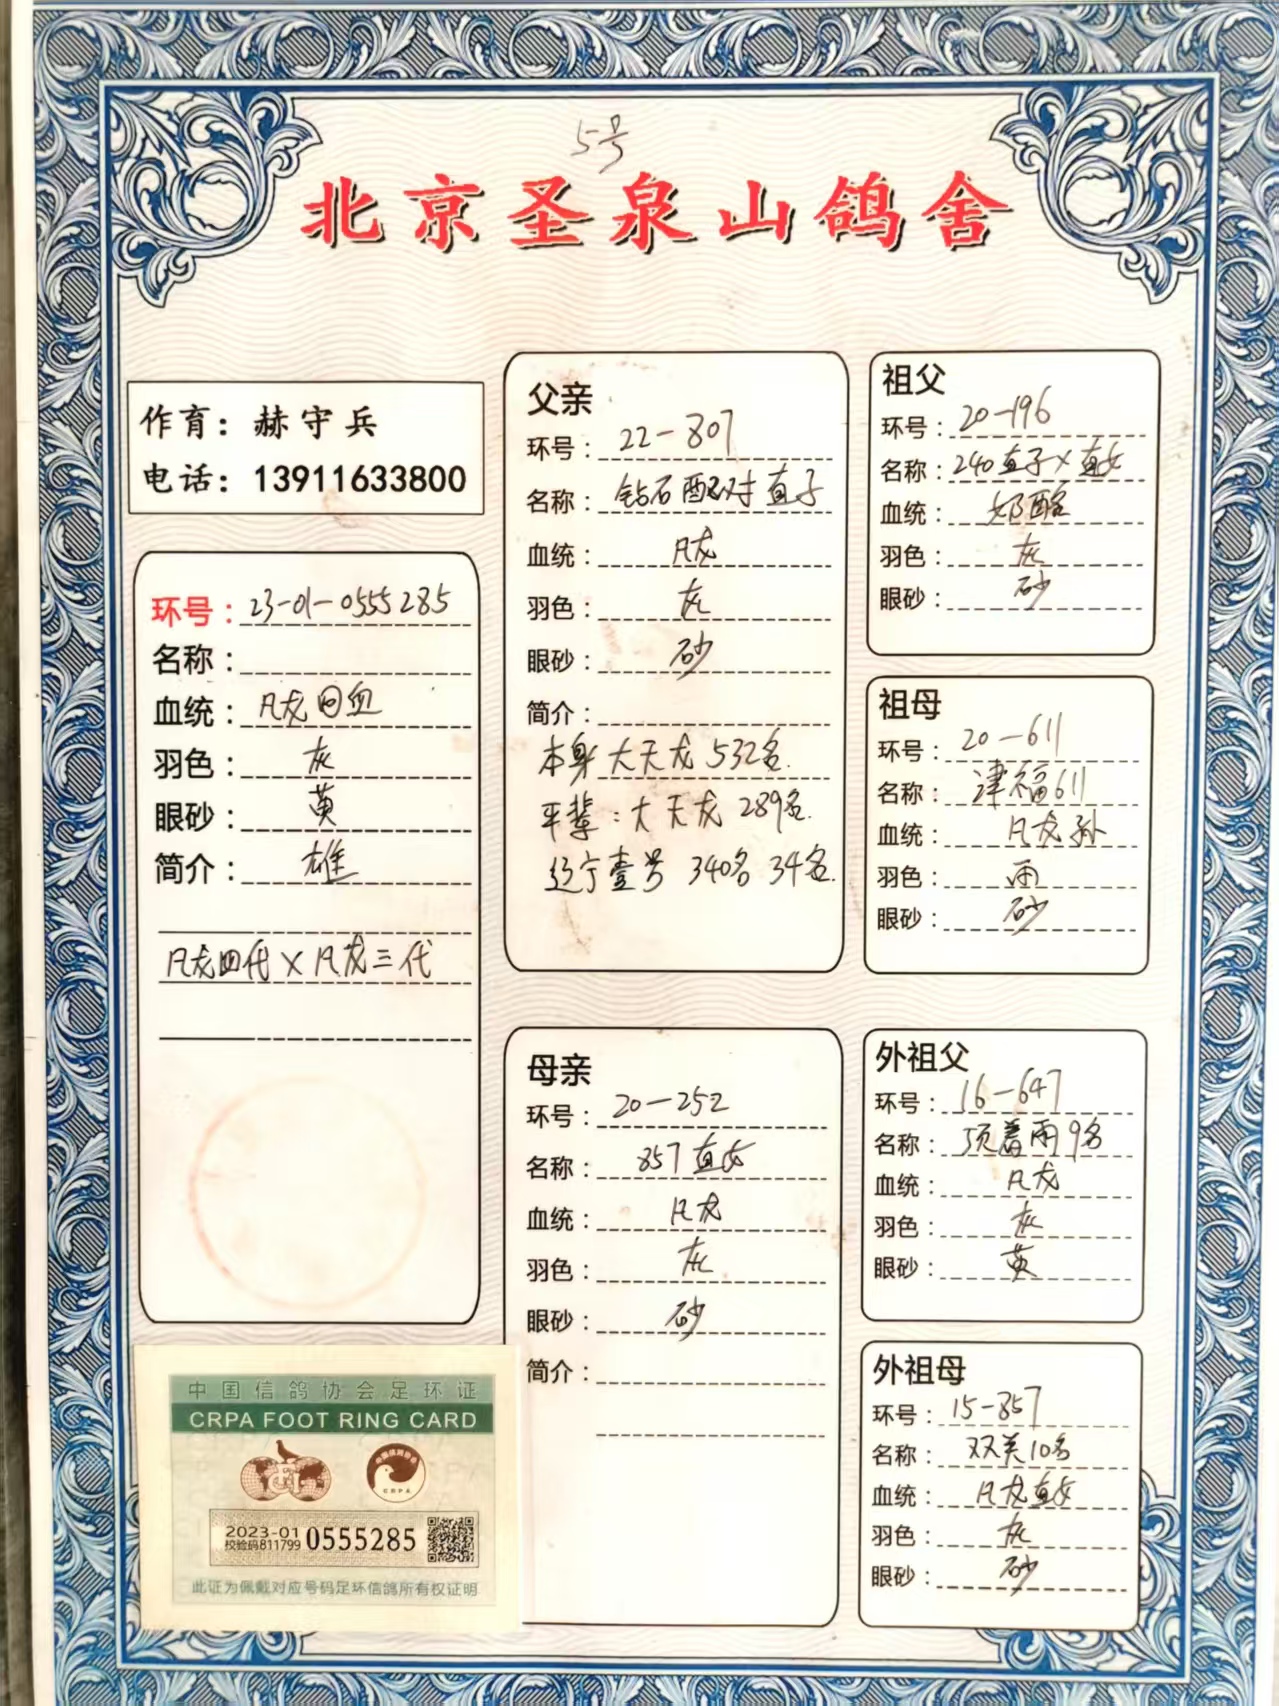 5号
北京圣泉山鸽舍
作育：赫守兵
电话：13911633800
环号：23-01-0555285
名称：
血统：凡龙回血
羽色：灰
眼砂：黄
简介：雄
凡龙四代×凡龙三代
父亲
环号：22-807
名称：钻石配对直子
血统：凡龙
羽色：灰
眼砂：砂
简介：
本身大天龙532名.
平辈：大天龙289名.
辽宁壹号 340名 34名.
母亲
环号：20-252
名称：857直女
血统：凡龙
羽色：灰
眼砂：砂
简介：
祖父
环号：20-196
名称：240直子×直女
血统：奶酪
羽色：灰
眼砂：砂
祖母
环号：20-611
名称：津福611
血统：凡龙孙
羽色：雨
眼砂：砂
外祖父
环号：16-647
名称：顶着雨9名
血统：凡龙
羽色：灰
眼砂：黄
外祖母
环号：15-857
名称：双关10名
血统：凡龙直女
羽色：灰
眼砂：砂
中国信鸽协会足环证
CRPA FOOT RING CARD
CRPA
2023-01
校验码811799
0555285
此证为佩戴对应号码足环信鸽所有权证明